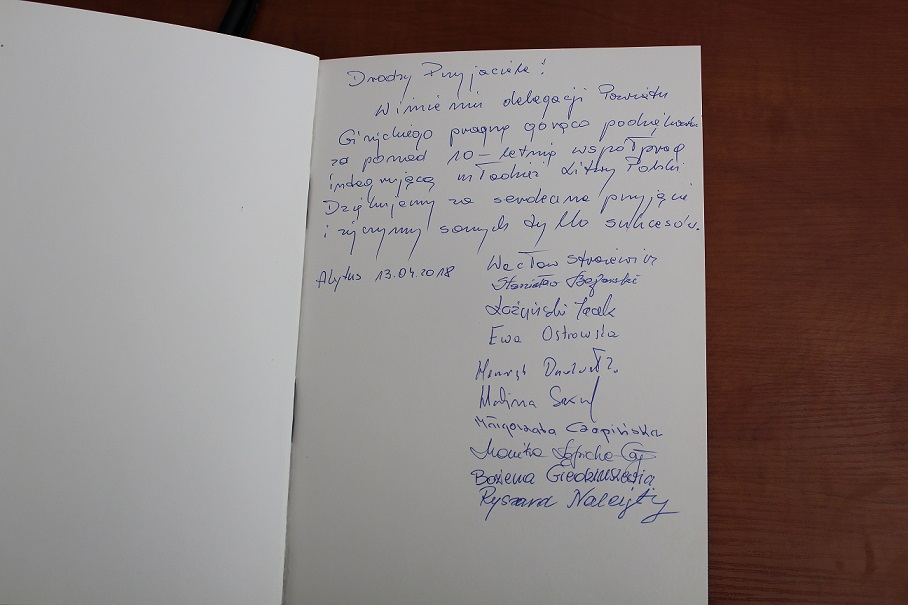 Drodzy Przyjaciele!
W imieniu delegacji Powiatu
Giżyckiego pragnę gorąco podziękować
za ponad 10-letnią współpracę
integrującą młodzież Litwy i Polski
Dziękujemy za serdeczne przyjęcie
i życzymy samych tylko sukcesów.
Alytus 13.04.2018
Wacław Strażewicz
Stanisław
Łożyński Jacek
Ewa Ostrowska
Henryk
Malina
Małgorzata Czopińska
Monika Łępicka
Bożena
Ryszard Należyty